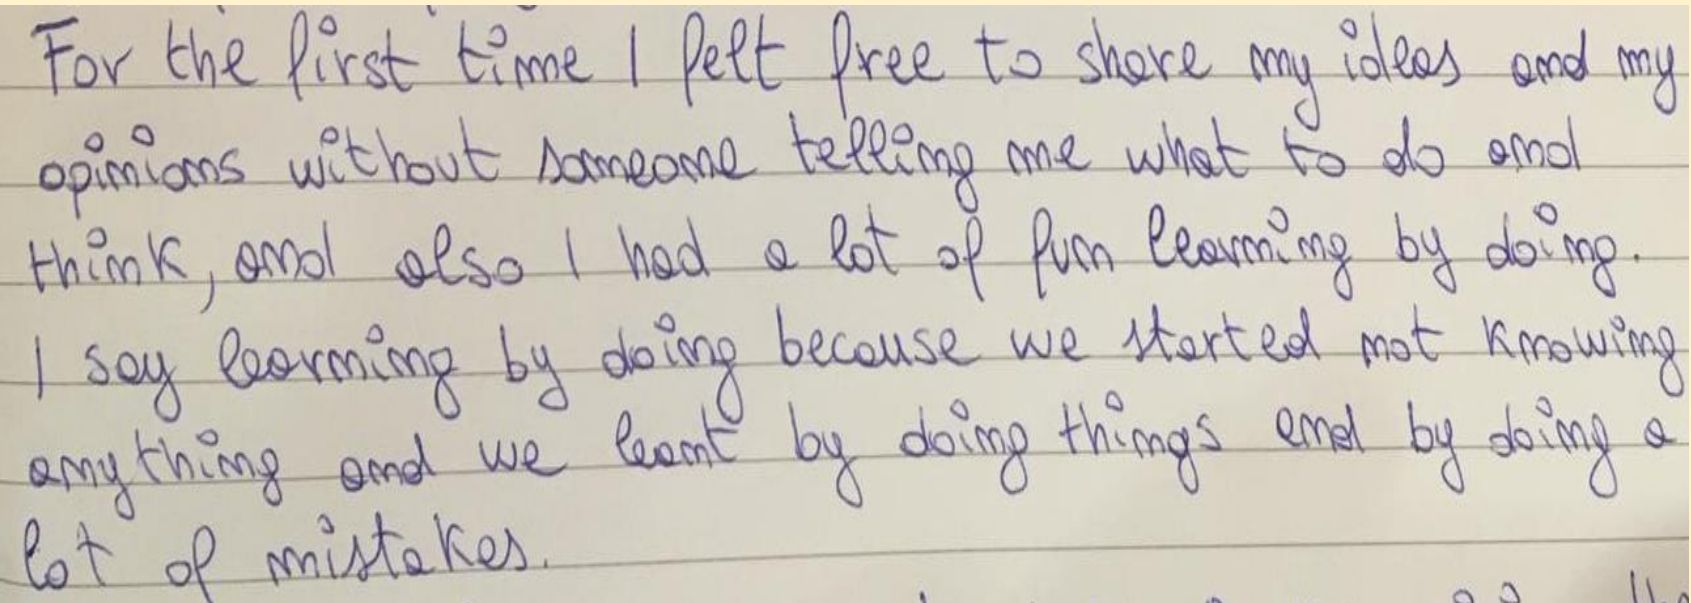 For the first time I felt free to share my ideas and my
opinions without someone telling me what to do and
think, and also I had a lot of fun learning by doing.
I say learning by doing because we started not knowing
anything and we learnt by doing things and by doing a
lot of mistakes.